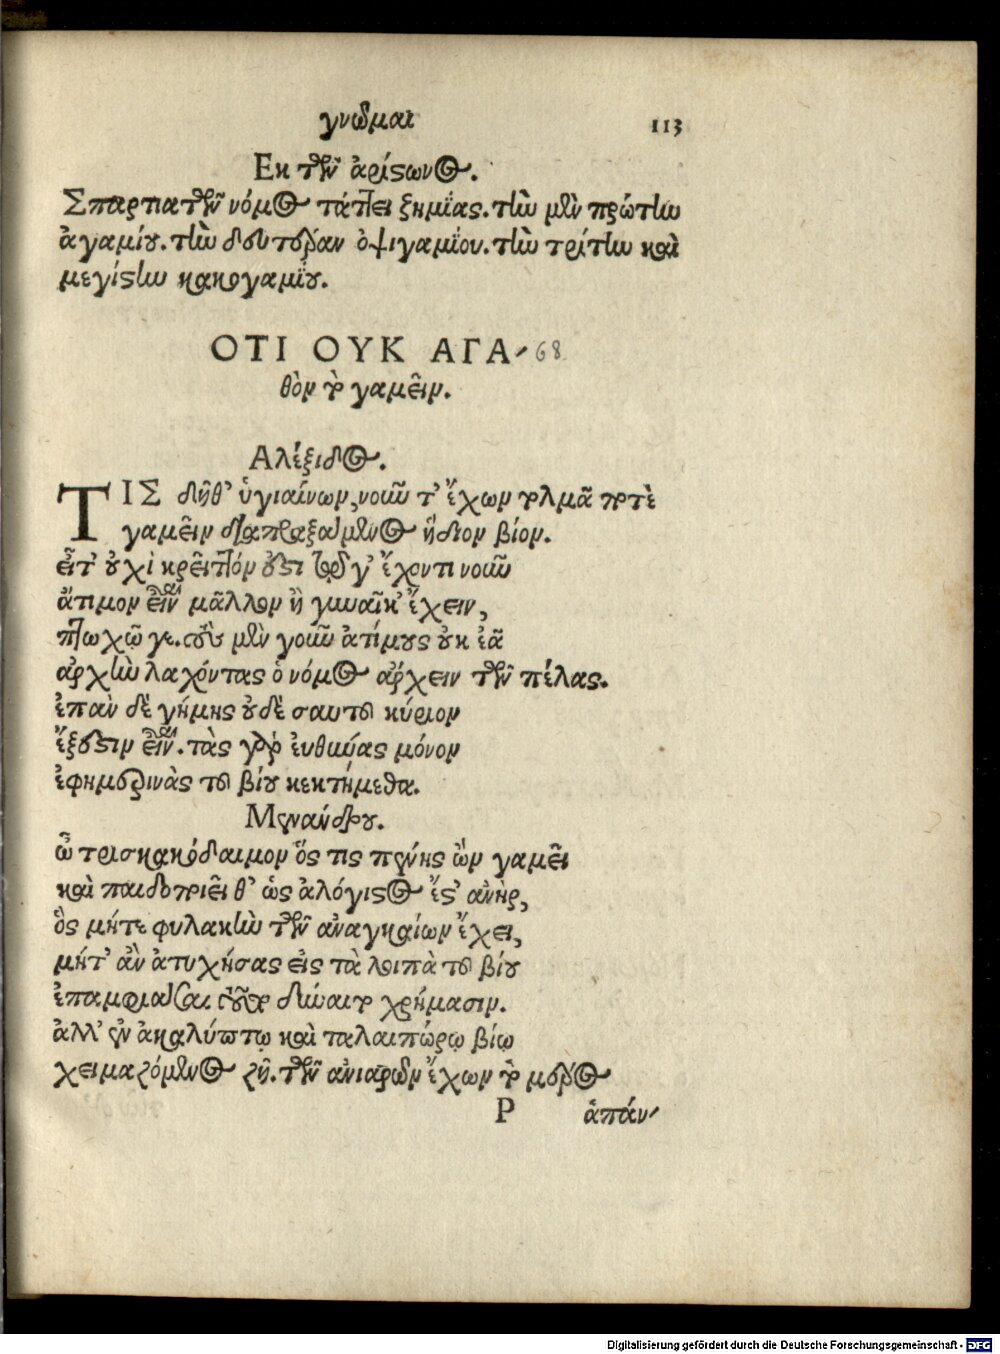 γνῶμαι 113
Εκ τῶν ἀρίστωνος.
Σπαρτιατῶν νόμος τάττει ζημίας. τὴν μὲν πρώτην
ἀγαμίου. τὴν δευτέραν ὀψιγαμίου. τὴν τρίτην καὶ
μεγίστην κακογαμίου.
ΟΤΙ ΟΥΚ ΑΓΑ- 68
θὸν τὸ γαμεῖν.
Αλέξιδος.
ΤΙΣ δῆθ' ὑγιαίνων, νοῦν τ' ἔχων τολμᾶ ποτὲ
γαμεῖν διαπραξάμενος ἥδιον βίον.
εἶτ' οὐχὶ κρεῖττόν ἐστι τῷ γ' ἔχοντι νοῦν
ἄτιμον εἶναι μᾶλλον ἢ γυναῖκ' ἔχειν,
πτωχῷ γε. τοὺς μὲν γοῦν ἀτίμους οὐκ ἐᾶ
ἀρχὴν λαχόντας ὁ νόμος ἄρχειν τῶν πέλας.
ἐπὰν δὲ γήμης οὐδὲ σαυτοῦ κύριον
ἔξεστιν εἶναι. τὰς γὰρ εὐθύνας μόνον
ἐφημερινὰς τοῦ βίου κεκτήμεθα.
Μενάνδρου.
ὦ τρισκακόδαιμον ὅς τις πένης ὢν γαμεῖ
καὶ παιδοποιεῖ θ' ὡς ἀλόγιστος ἔστ' ἀνὴρ,
ὃς μήτε φυλακὴν τῶν ἀναγκαίων ἔχει,
μήτ' ἂν ἀτυχήσας εἰς τὰ λοιπὰ τοῦ βίου
ἐπαμφιάσαι τοῦτο δύναιτο χρήμασιν.
ἀλλ' ἐν ἀκαλύπτῳ καὶ ταλαιπώρῳ βίῳ
χειμαζόμενος ζῇ. τῶν ἀνιαρῶν ἔχων τὸ μέρος
P ἁπάν-
Digitalisierung gefördert durch die Deutsche Forschungsgemeinschaft - DFG